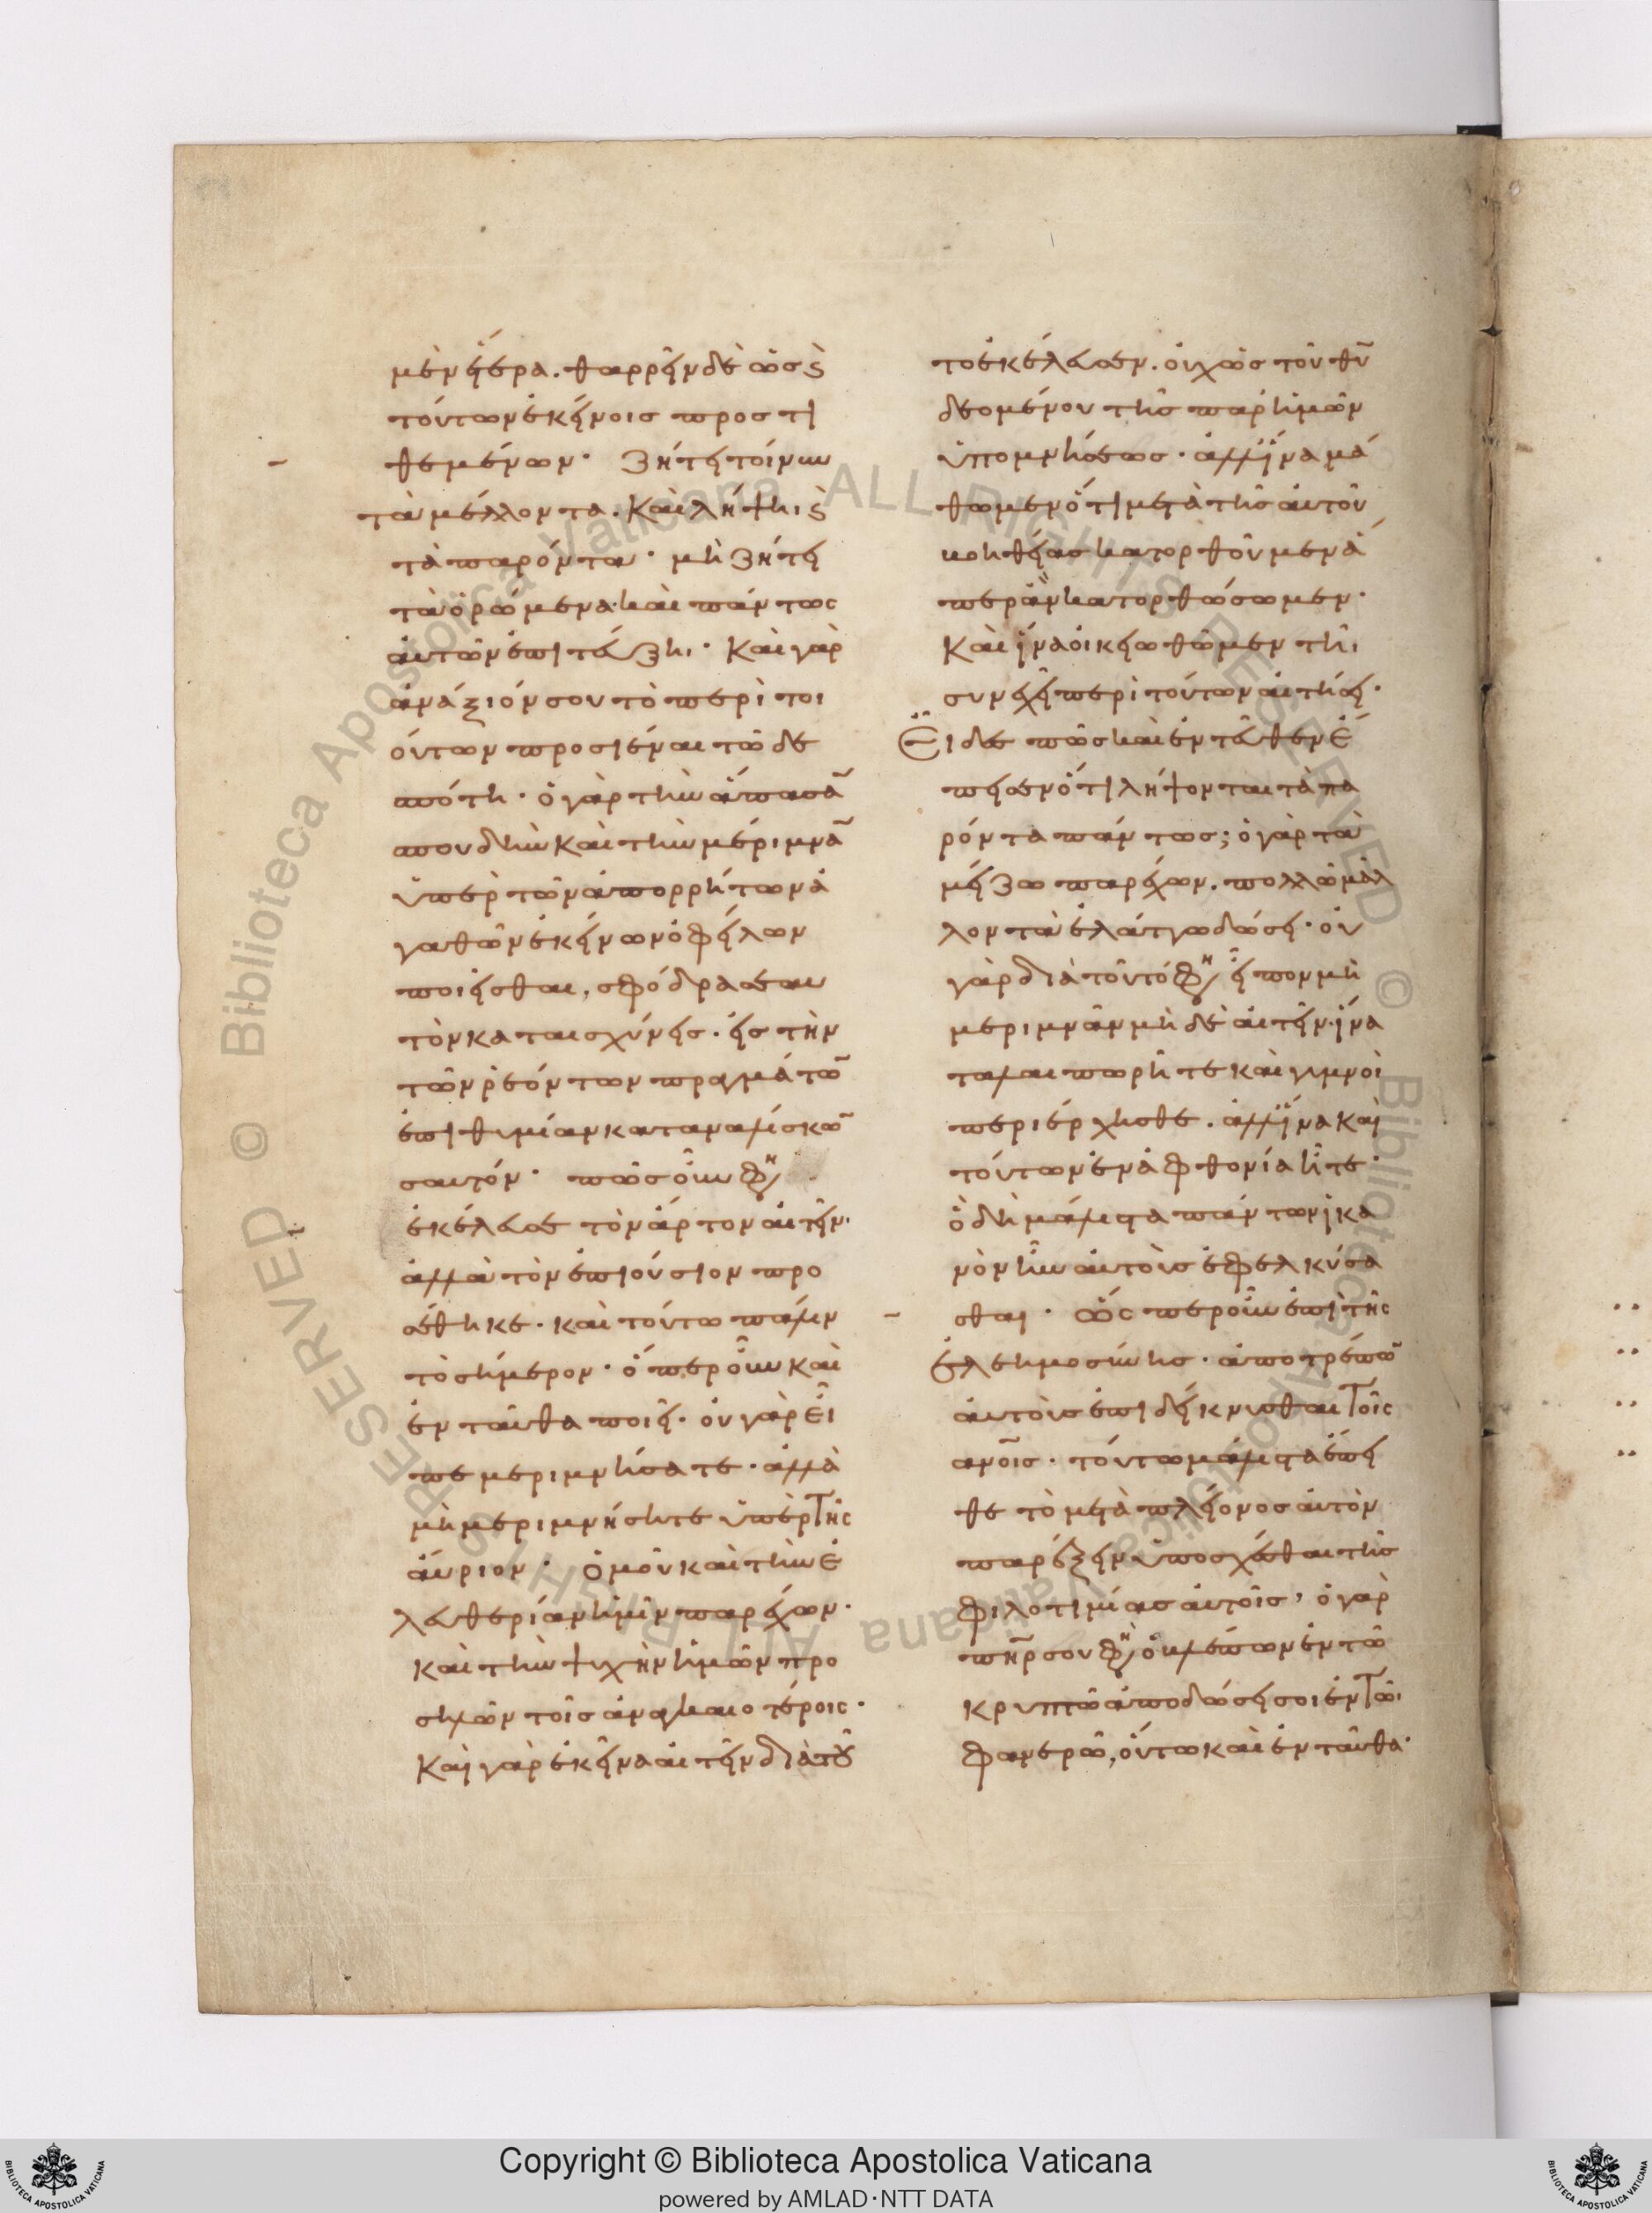 μὲν ἕτερα. θαρρεῖν δὲ ὡς ϗ
τούτων ἐκείνοις προστι
θεμένων· Ζήτει τοίνυν
τὰ μέλλοντα. Καὶ λήψηι ϗ
τὰ παρόντα· μὴ ζήτει
τὰ ὁρώμενα· καὶ πάντως
αὐτῶν ἐπιτεύξηι· Καὶ γὰρ
ἀνάξιόν σου τὸ περὶ τοι
ούτων προσιέναι τῶ δε
σπότη· ὁ γὰρ τὴν ἅπασα̅
σπουδὴν καὶ τὴν μέριμνα̅
ὑπὲρ τῶν ἀπορρήτων ἀ
γαθῶν ἐκείνων ὀφείλων
ποιεῖσθαι, σφόδρα σεαυ
τὸν καταισχύνεις· εἰς τὴν
τῶν ῥεόντων πραγμάτω̅
ἐπιθυμίαν καταναλίσκω̅
σαυτόν· πῶς οὖν φη
ἐκέλευσε τὸν ἄρτον αἰτεῖν·
ἀλλὰ τὸν ἐπιούσιον προ
σέθηκε· καὶ τούτω πάλιν
τὸ σήμερον· ὅπερ οὖν καὶ
ἐνταῦθα ποιεῖ· οὐ γὰρ εἶ
πε μεριμνήσατε· ἀλλὰ
μὴ μεριμνήσητε ὑπὲρ τῆς
αὔριον· ὁμοῦ καὶ τὴν ἐ
λευθερίαν ἡμῖν παρέχων·
καὶ τὴν ψυχὴν ἡμῶν προ
σηλῶν τοῖς ἀναγκαιοτέροις·
Καὶ γὰρ ἐκεῖνα αἰτεῖν διὰ τοῦ
το ἐκέλευσεν. οὐχ ὡς τοῦ θυ̅
δεομένου τῆς παρ' ἡμῶν
ὑπομνήσεως· ἀλλ' ἵνα μά
θωμεν ὅτι μετὰ τῆς αὐτοῦ
βοηθείας κατορθοῦμεν ἅ
περ ἂν κατορθώσωμεν·
Καὶ ἵνα οἰκειωθῶμεν τῆι
συνεχεῖ περὶ τούτων αἰτήσει·
Εἶδες πῶς καὶ ἐντεῦθεν ἔ
πεισεν ὅτι λήψονται τὰ πα
ρόντα πάντως; ὁ γὰρ τὰ
μείζω παρέχων. πολλῶ μᾶλ
λον τὰ ἐλάττω δώσει· οὐ
γὰρ διὰ τοῦτό φη εἶπον μὴ
μεριμνᾶν μὴ δὲ αἰτεῖν· ἵνα
ταλαιπωρῆτε καὶ γυμνοὶ
περιέρχησθε. ἀλλ' ἵνα καὶ
τούτων ἐν ἀφθονία ἦτε·
ὃ δὴ μάλιστα πάντων ἱκα
νὸν ἦν αὐτοὺς ἐφελκύσα
σθαι· ὥσπερ οὖν ἐπὶ τῆς
ἐλεημοσύνης· ἀποτρέπω̅
αὐτοὺς ἐπιδείκνυσθαι τοῖς
ανοις· τούτω μάλιστα ἔπει
θε τὸ μετὰ πλείονος αὐτὸν
παρέξειν ὑποσχέσθαι τῆς
φιλοτιμίας αὐτοῖς, ὁ γὰρ
πηρ σου φη ὁ βλέπων ἐν τῶ
κρυπτῶ ἀποδώσει σοι ἐν τῶι
φανερῶ, οὕτω καὶ ἐνταῦθα·
Copyright © Biblioteca Apostolica Vaticana
powered by AMLAD·NTT DATA